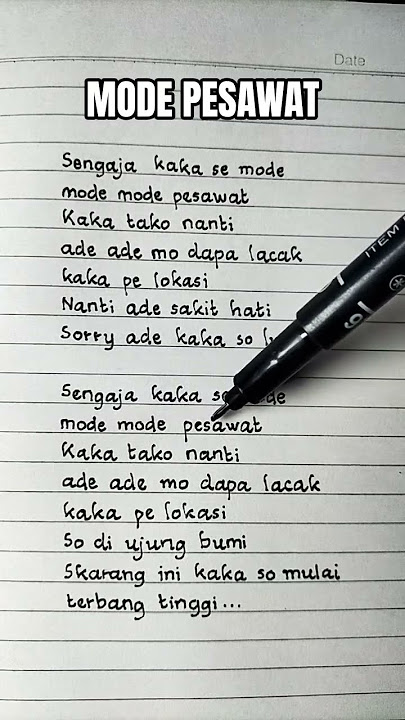 Date
MODE PESAWAT
Sengaja kaka se mode
mode mode pesawat
Kaka tako nanti
ade ade mo dapa lacak
kaka pe lokasi
Nanti ade sakit hati
Sorry ade kaka so
Sengaja kaka
mode mode pesawat
Kaka tako nanti
ade ade mo dapa lacak
kaka pe lokasi
So di ujung bumi
Skarang ini kaka so mulai
terbang tinggi...
ITEM